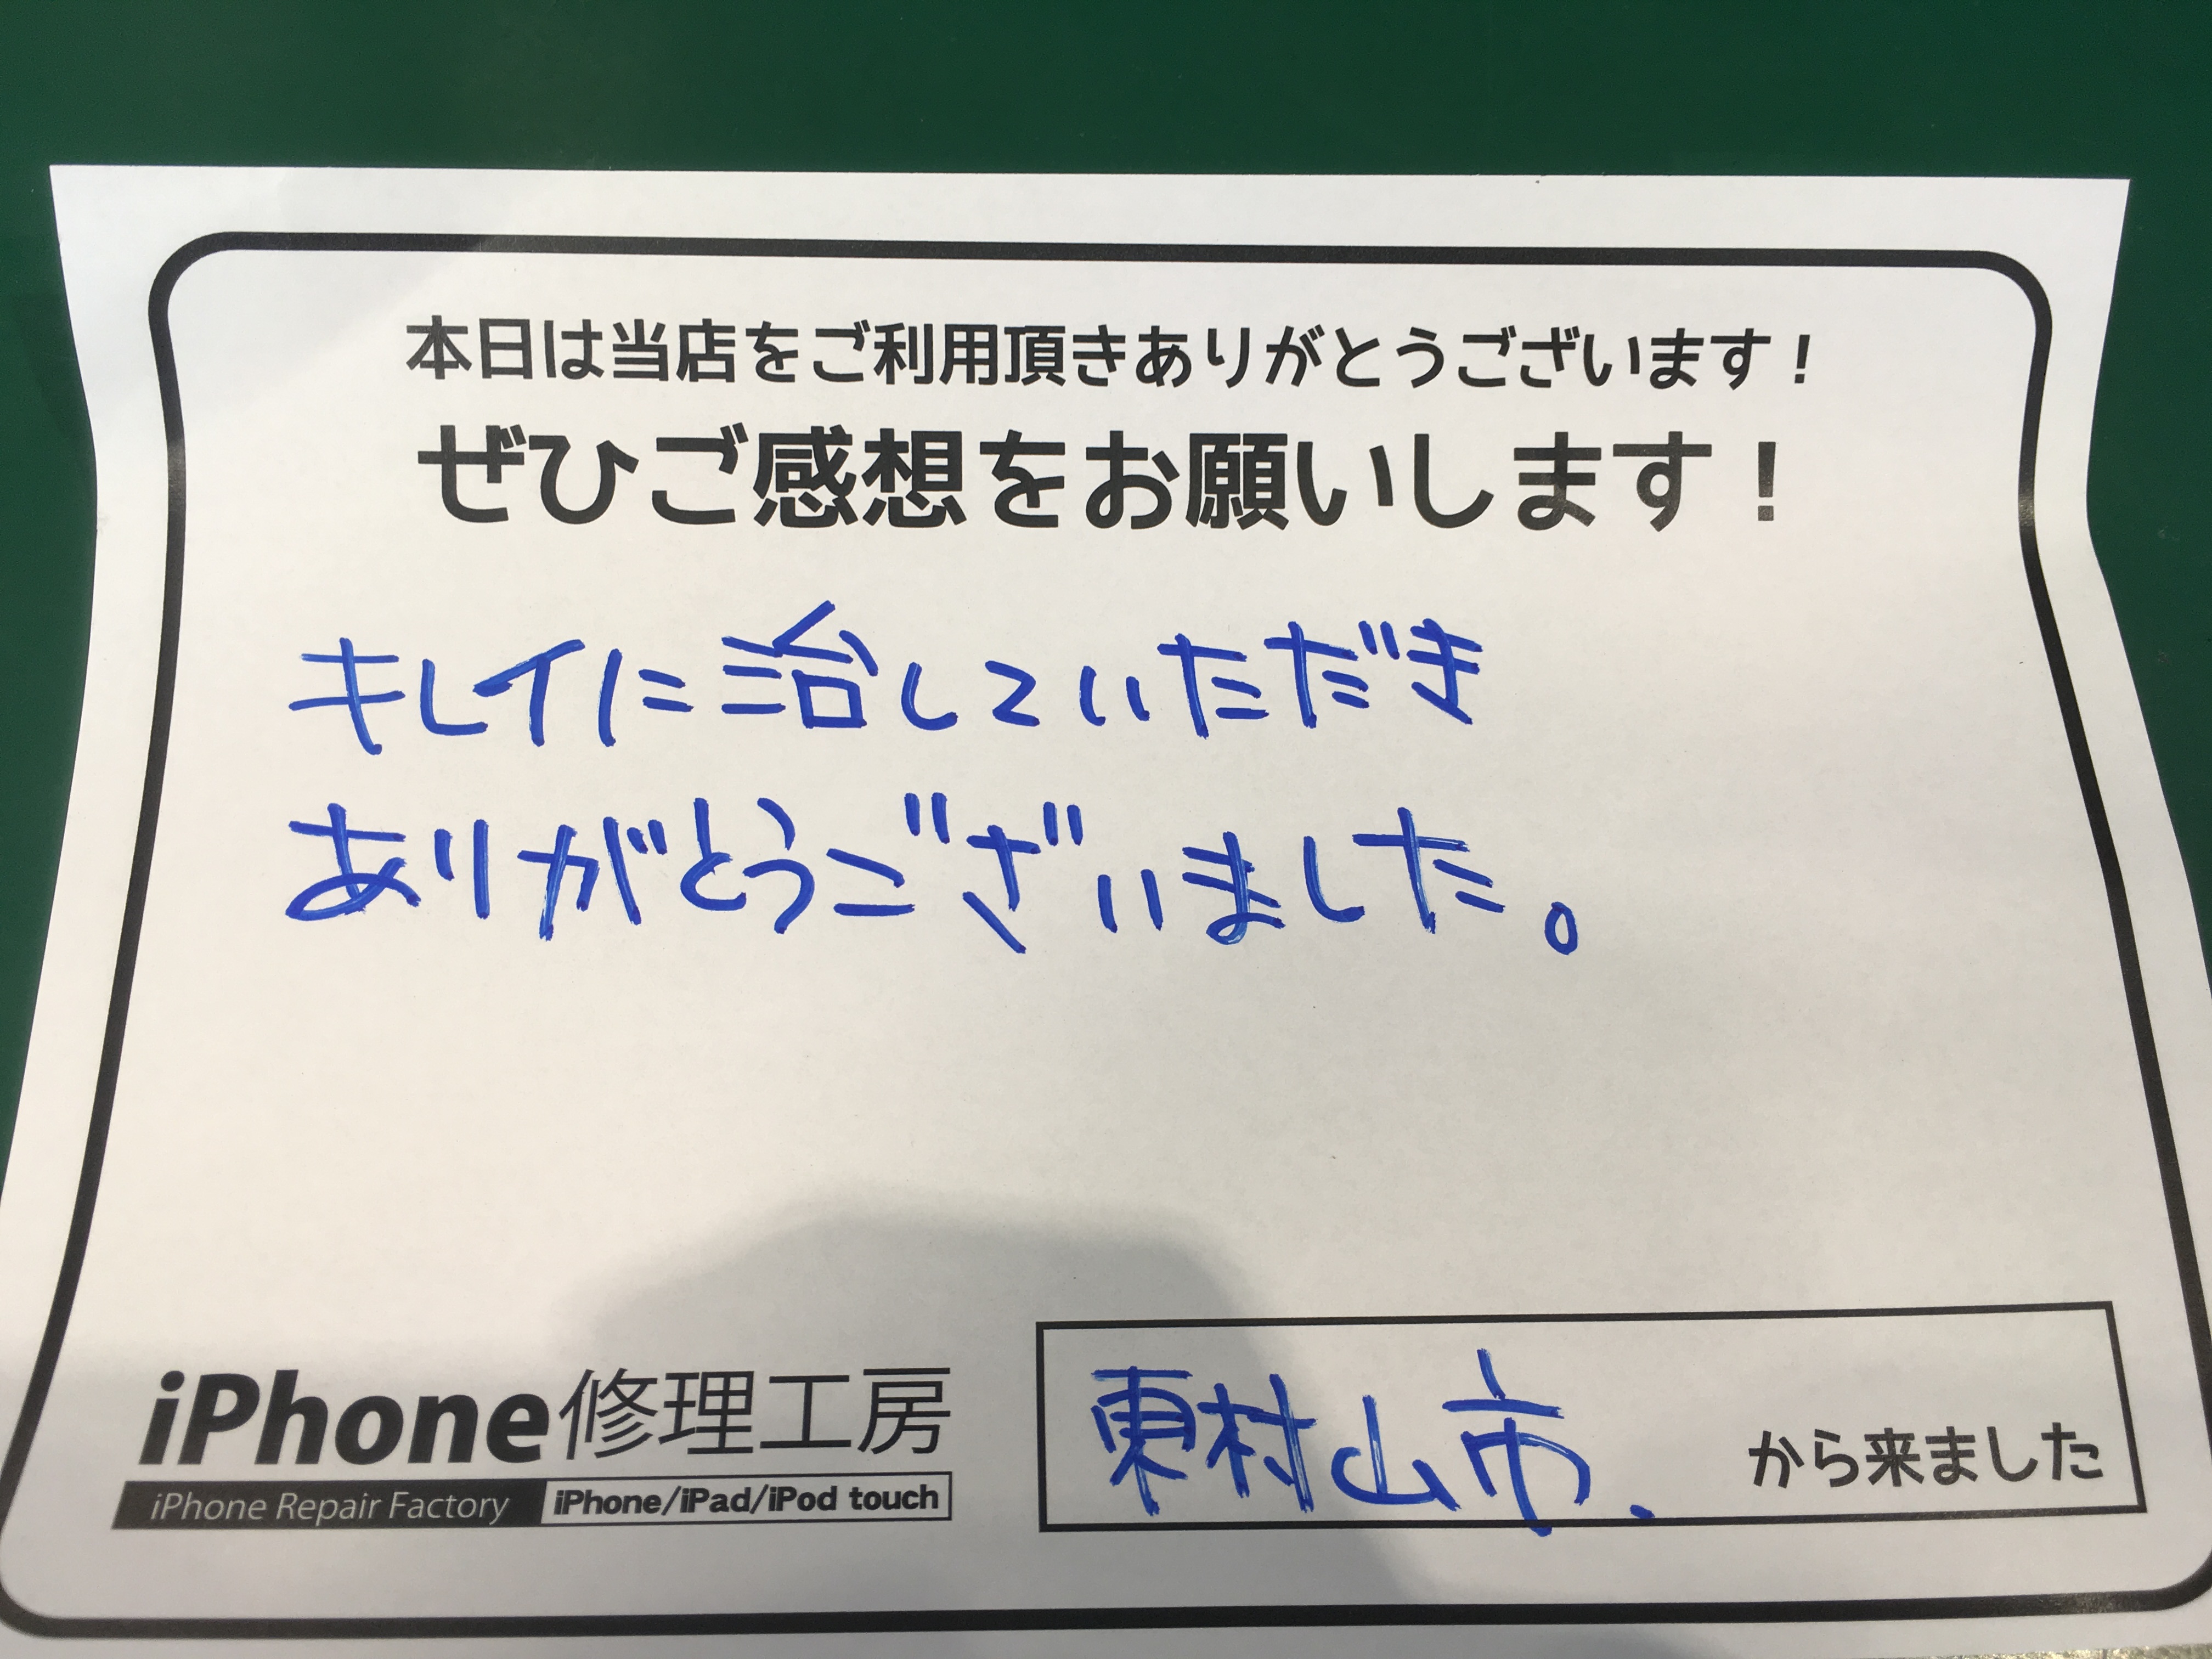 本日は当店をご利用頂きありがとうございます！
ぜひご感想をお願いします！
キレイに治していただき
ありがとうございました。
iPhone修理工房
iPhone Repair Factory iPhone/iPad/iPod touch
東村山市. から来ました